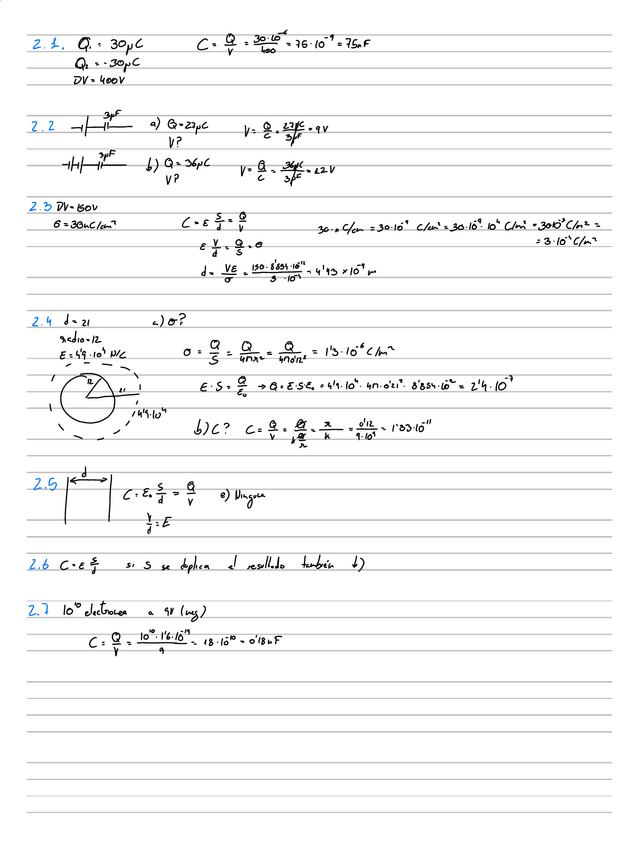 2.1. Q₁ = 30μC C = Q/V = 30·10⁻⁶/400 = 75·10⁻⁹ = 75nF
Q₂ = -30μC
DV = 400V
2.2 3μF a) Q=27μC V = Q/C = 27μC/3μF = 9V
V?
3μF b) Q = 36μC V = Q/C = 36μC/3μF = 12V
V?
2.3 DV=150V
σ = 30nC/cm² C = ε S/d = Q/V 30·nC/cm = 30·10⁻⁹ C/cm² = 30·10⁻⁹·10⁴ C/m² = 30·10⁻⁵ C/m² =
= 3·10⁻⁴ C/m²
ε V/d = Q/S = σ
d = Vε/σ = 150·8'854·10⁻¹²/3·10⁻⁴ = 4'43 × 10⁻⁶ m
2.4 d = 21 a) σ?
radio=12
E = 4'9·10⁴ N/C σ = Q/S = Q/4πr² = Q/4π0'12² = 1'3·10⁻⁶ C/m²
12 21
4'9·10⁴
E·S = Q/ε₀ → Q = E·S·ε₀ = 4'9·10⁴·4π·0'21²·8'854·10⁻¹² = 2'4·10⁻⁷
b) C? C = Q/V = Q/k Q/r = r/k = 0'12/9·10⁹ = 1'33·10⁻¹¹
2.5 d C = ε₀ S/d = Q/V e) Ninguna
V/d = E
2.6 C=ε S/d si S se duplica el resultado también b)
2.7 10¹⁰ electrones a 9V (neg)
C = Q/V = 10¹⁰·1'6·10⁻¹⁹/9 = 1'8·10⁻¹⁰ = 0'18nF